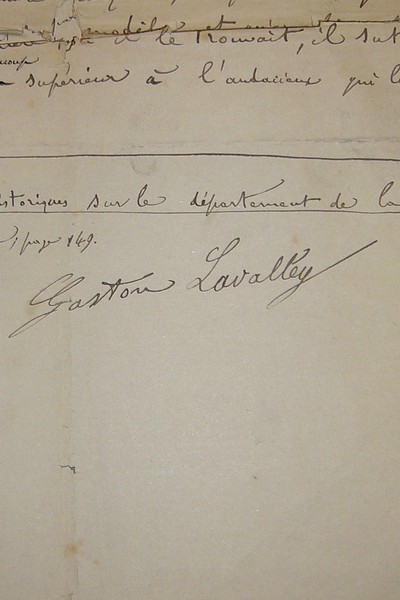 modèle et
il le trouvait, il fut
supérieur à l'audacieux qui l
istoriques sur le département de la
, page 149.
Gaston Lavalley